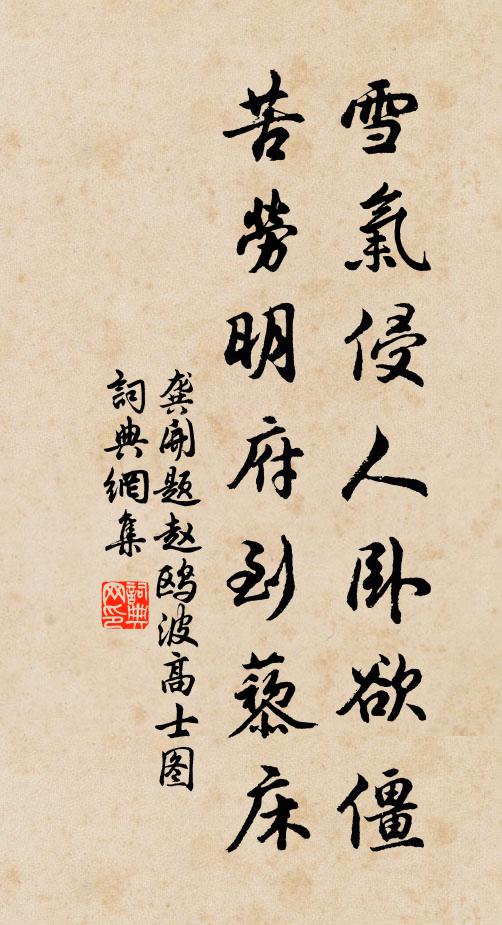 雪氣侵人卧欲僵
苦勞明府到藜床
龔開题赵鸥波高士图
詞典網集
詞典網印